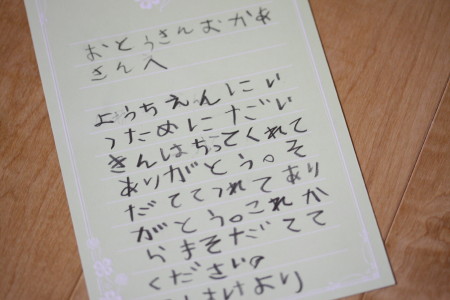 おとうさんおかあ
さんへ
ようちえんにい
つためにだい
きんはらってくれて
ありがとう。そ
だててつれてあり
がとう。これか
らまそだてて
ください。
けより